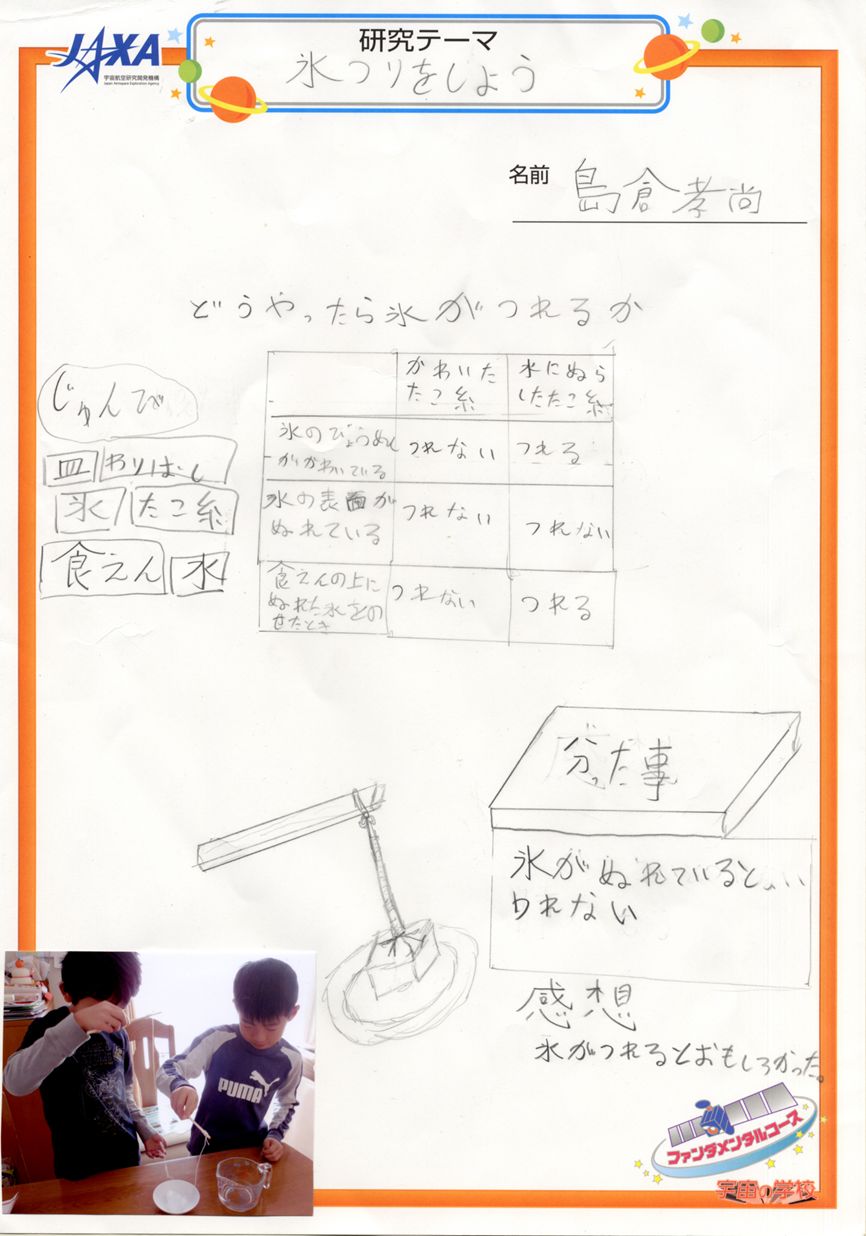 JAXA
宇宙航空研究開発機構
Japan Aerospace Exploration Agency
研究テーマ
氷つりをしよう
名前 島倉孝尚
どうやったら氷がつれるか
じゅんび
皿 わりばし
氷 たこ糸
食えん 水
かわいた
たこ糸
水にぬら
したたこ糸
氷のひょうめん
がかわいている
つれない
つれる
氷の表面が
ぬれている
つれない
つれない
食えんの上に
ぬれた氷をの
せたとき
つれない
つれる
分った事
氷がぬれていると
つれない
感想
氷がつれるとおもしろかった。
PUMA
ファンダメンタルコース
宇宙の学校